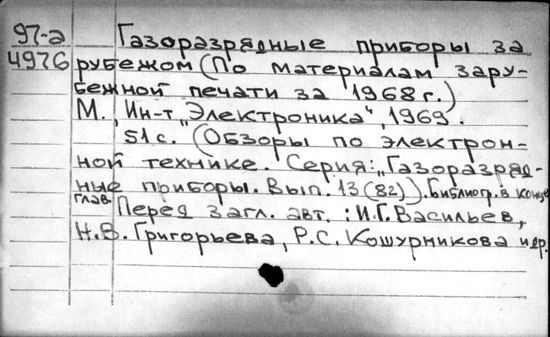 97-а Газоразрядные приборы за
4976 рубежом (По материалам зару-
бежной печати за 1968 г.)
М., Ин-т „Электроника", 1969.
51 с. (Обзоры по электрон-
ной технике. Серия: „Газоразряд-
ные приборы. Вып. 13 (82)). Библиогр. в конце
глав. Перед загл. авт.: И.Г. Васильев,
Н.В. Григорьева, Р.С. Кошурникова и др.